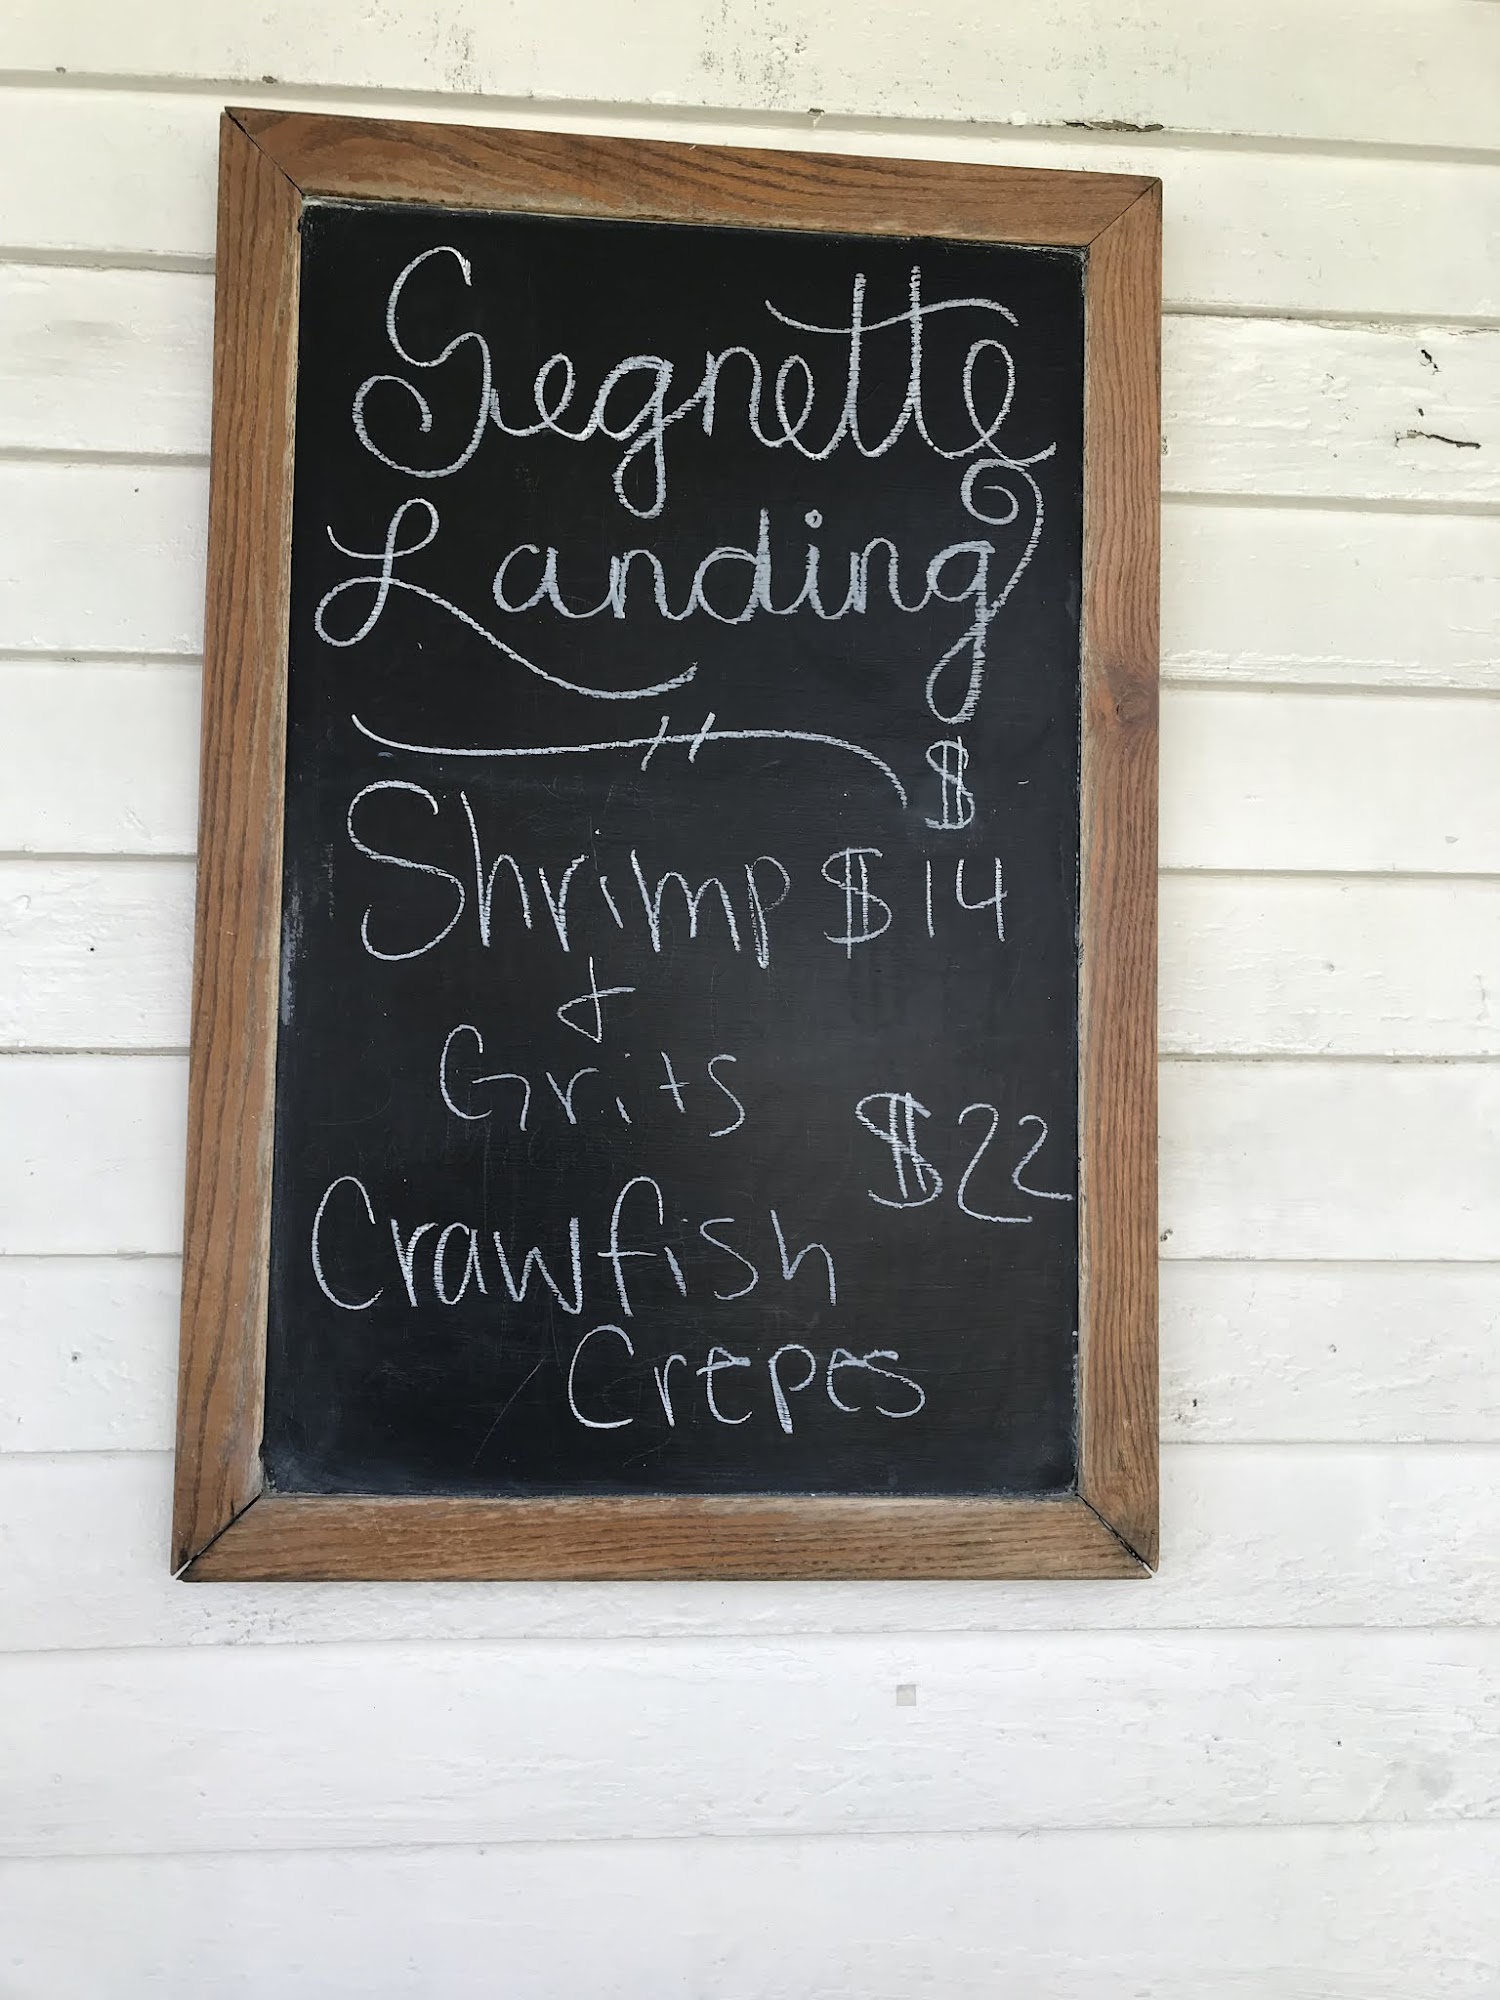 Segnette
Landing
$
Shrimp $14
&
Grits
$22
Crawfish
Crepes